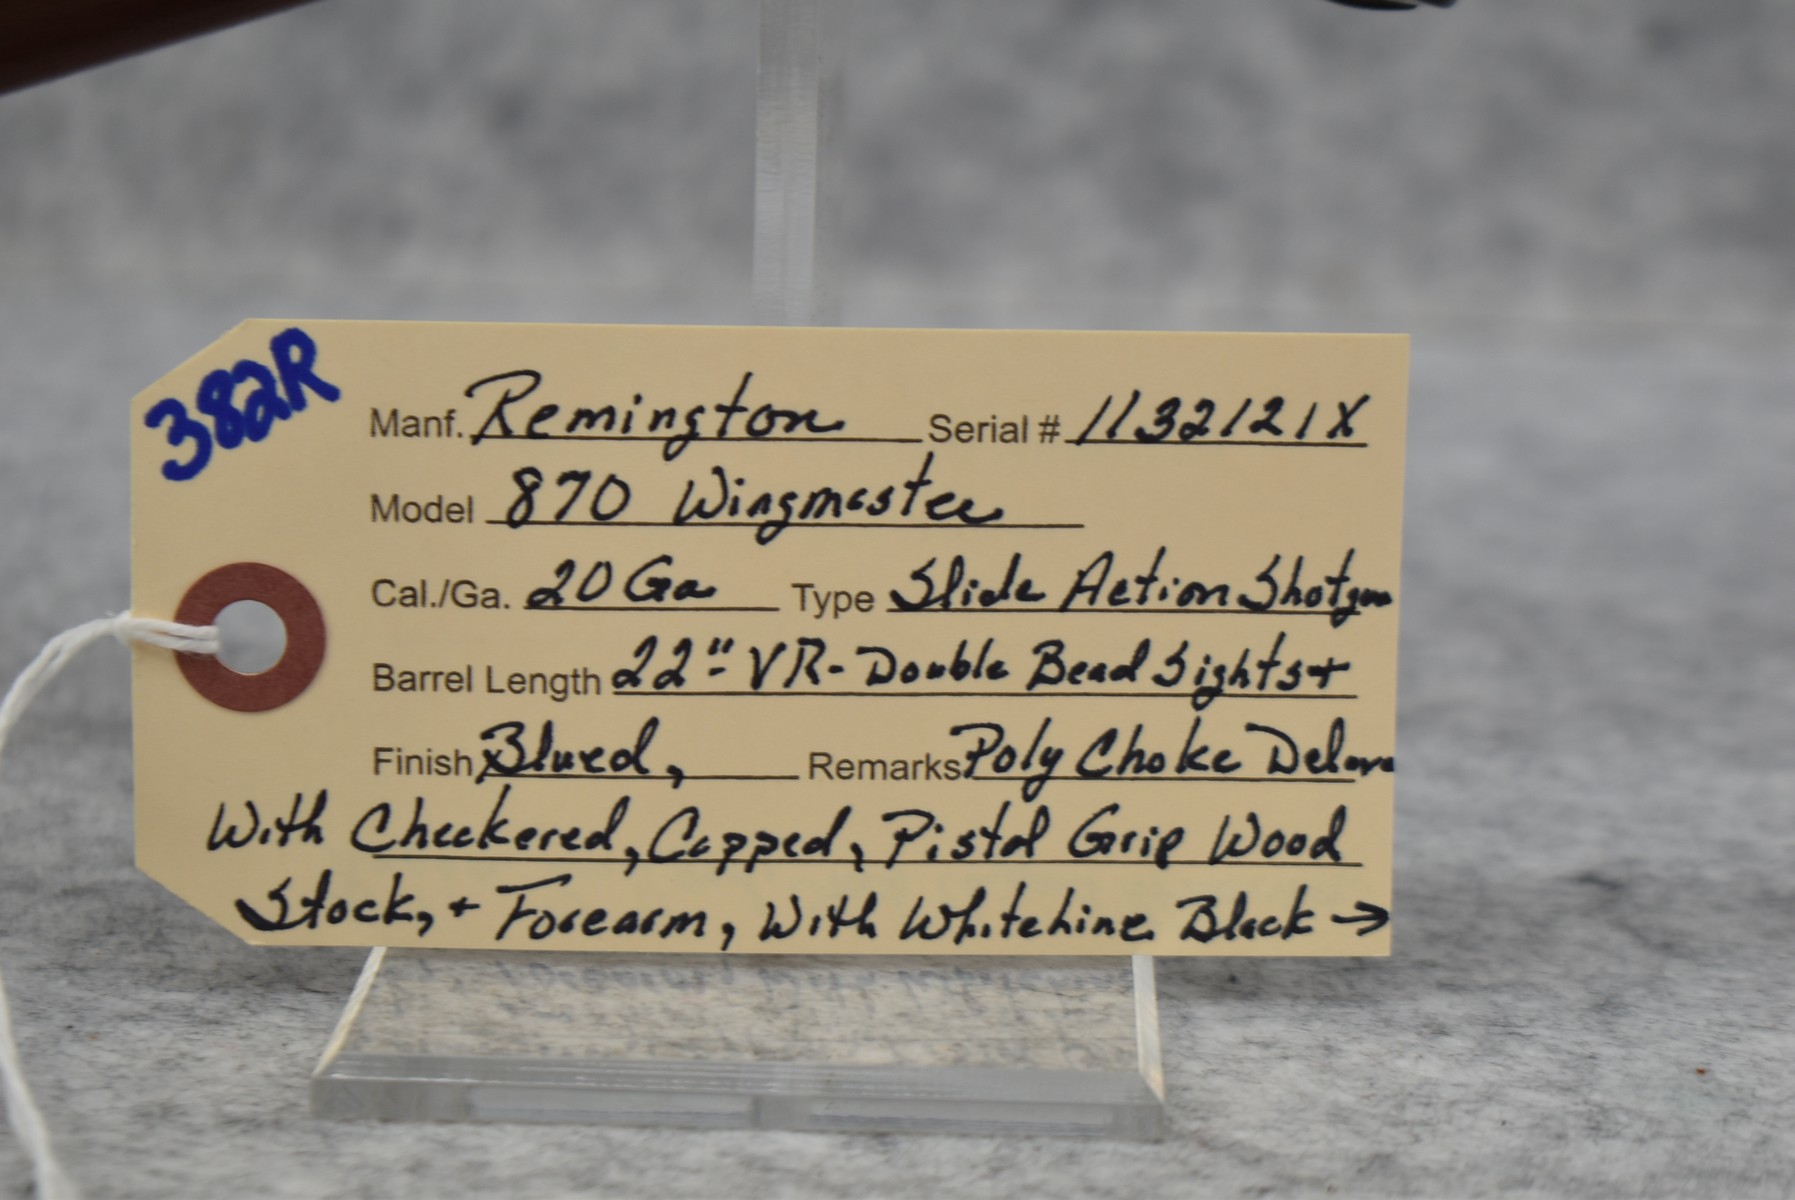 382R
Manf. Remington Serial # 1132121X
Model 870 Wingmaster
Cal./Ga. 20 Ga Type Slide Action Shotgun
Barrel Length 22" VR- Double Bead Sights +
Finish Blued, Remarks Poly Choke
With Checkered, Capped, Pistol Grip Wood
Stock, + Forearm, With Whiteline Black →